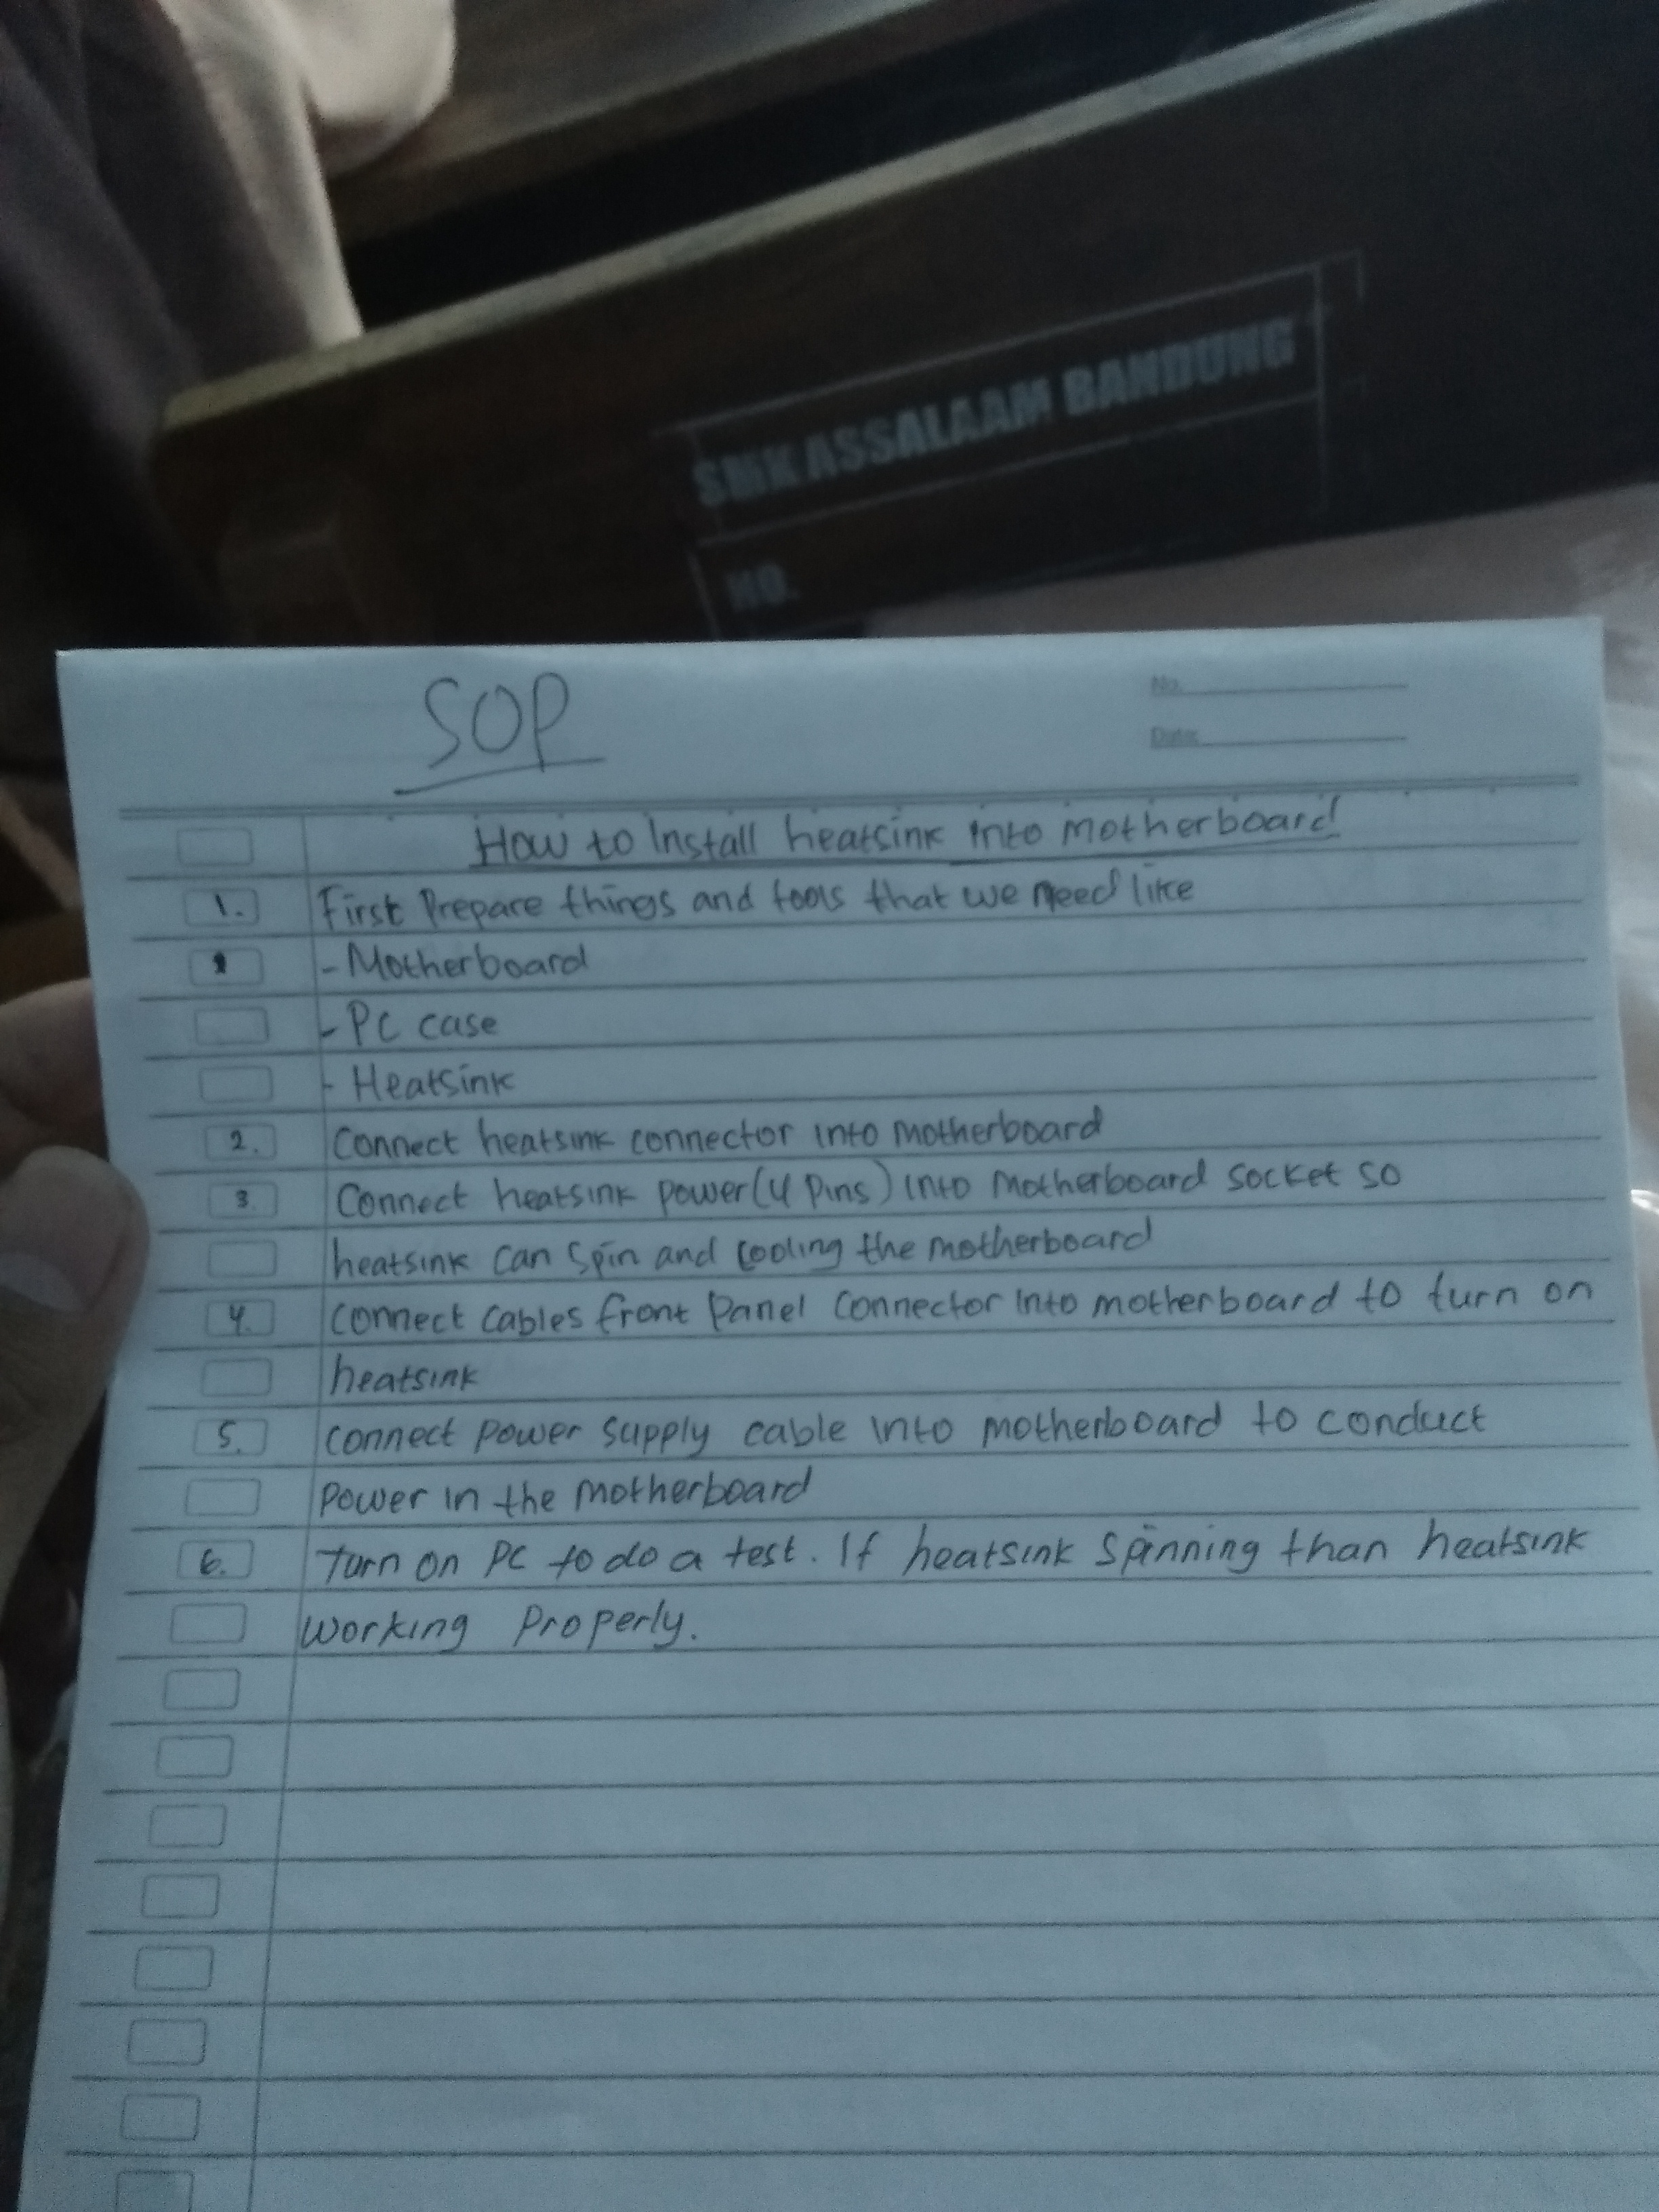 SMK ASSALAAM BANDUNG
NO.
SOP
No.
Date:
How to Install heatsink into motherboard
1. First Prepare things and tools that we need like
- Motherboard
- PC case
- Heatsink
2. Connect heatsink connector into motherboard
3. Connect heatsink power (4 Pins) into motherboard socket so
heatsink can spin and cooling the motherboard
4. Connect cables front Panel Connector into motherboard to turn on
heatsink
5. connect power supply cable into motherboard to conduct
Power in the motherboard
6. Turn on PC to do a test. If heatsink spinning than heatsink
working Properly.